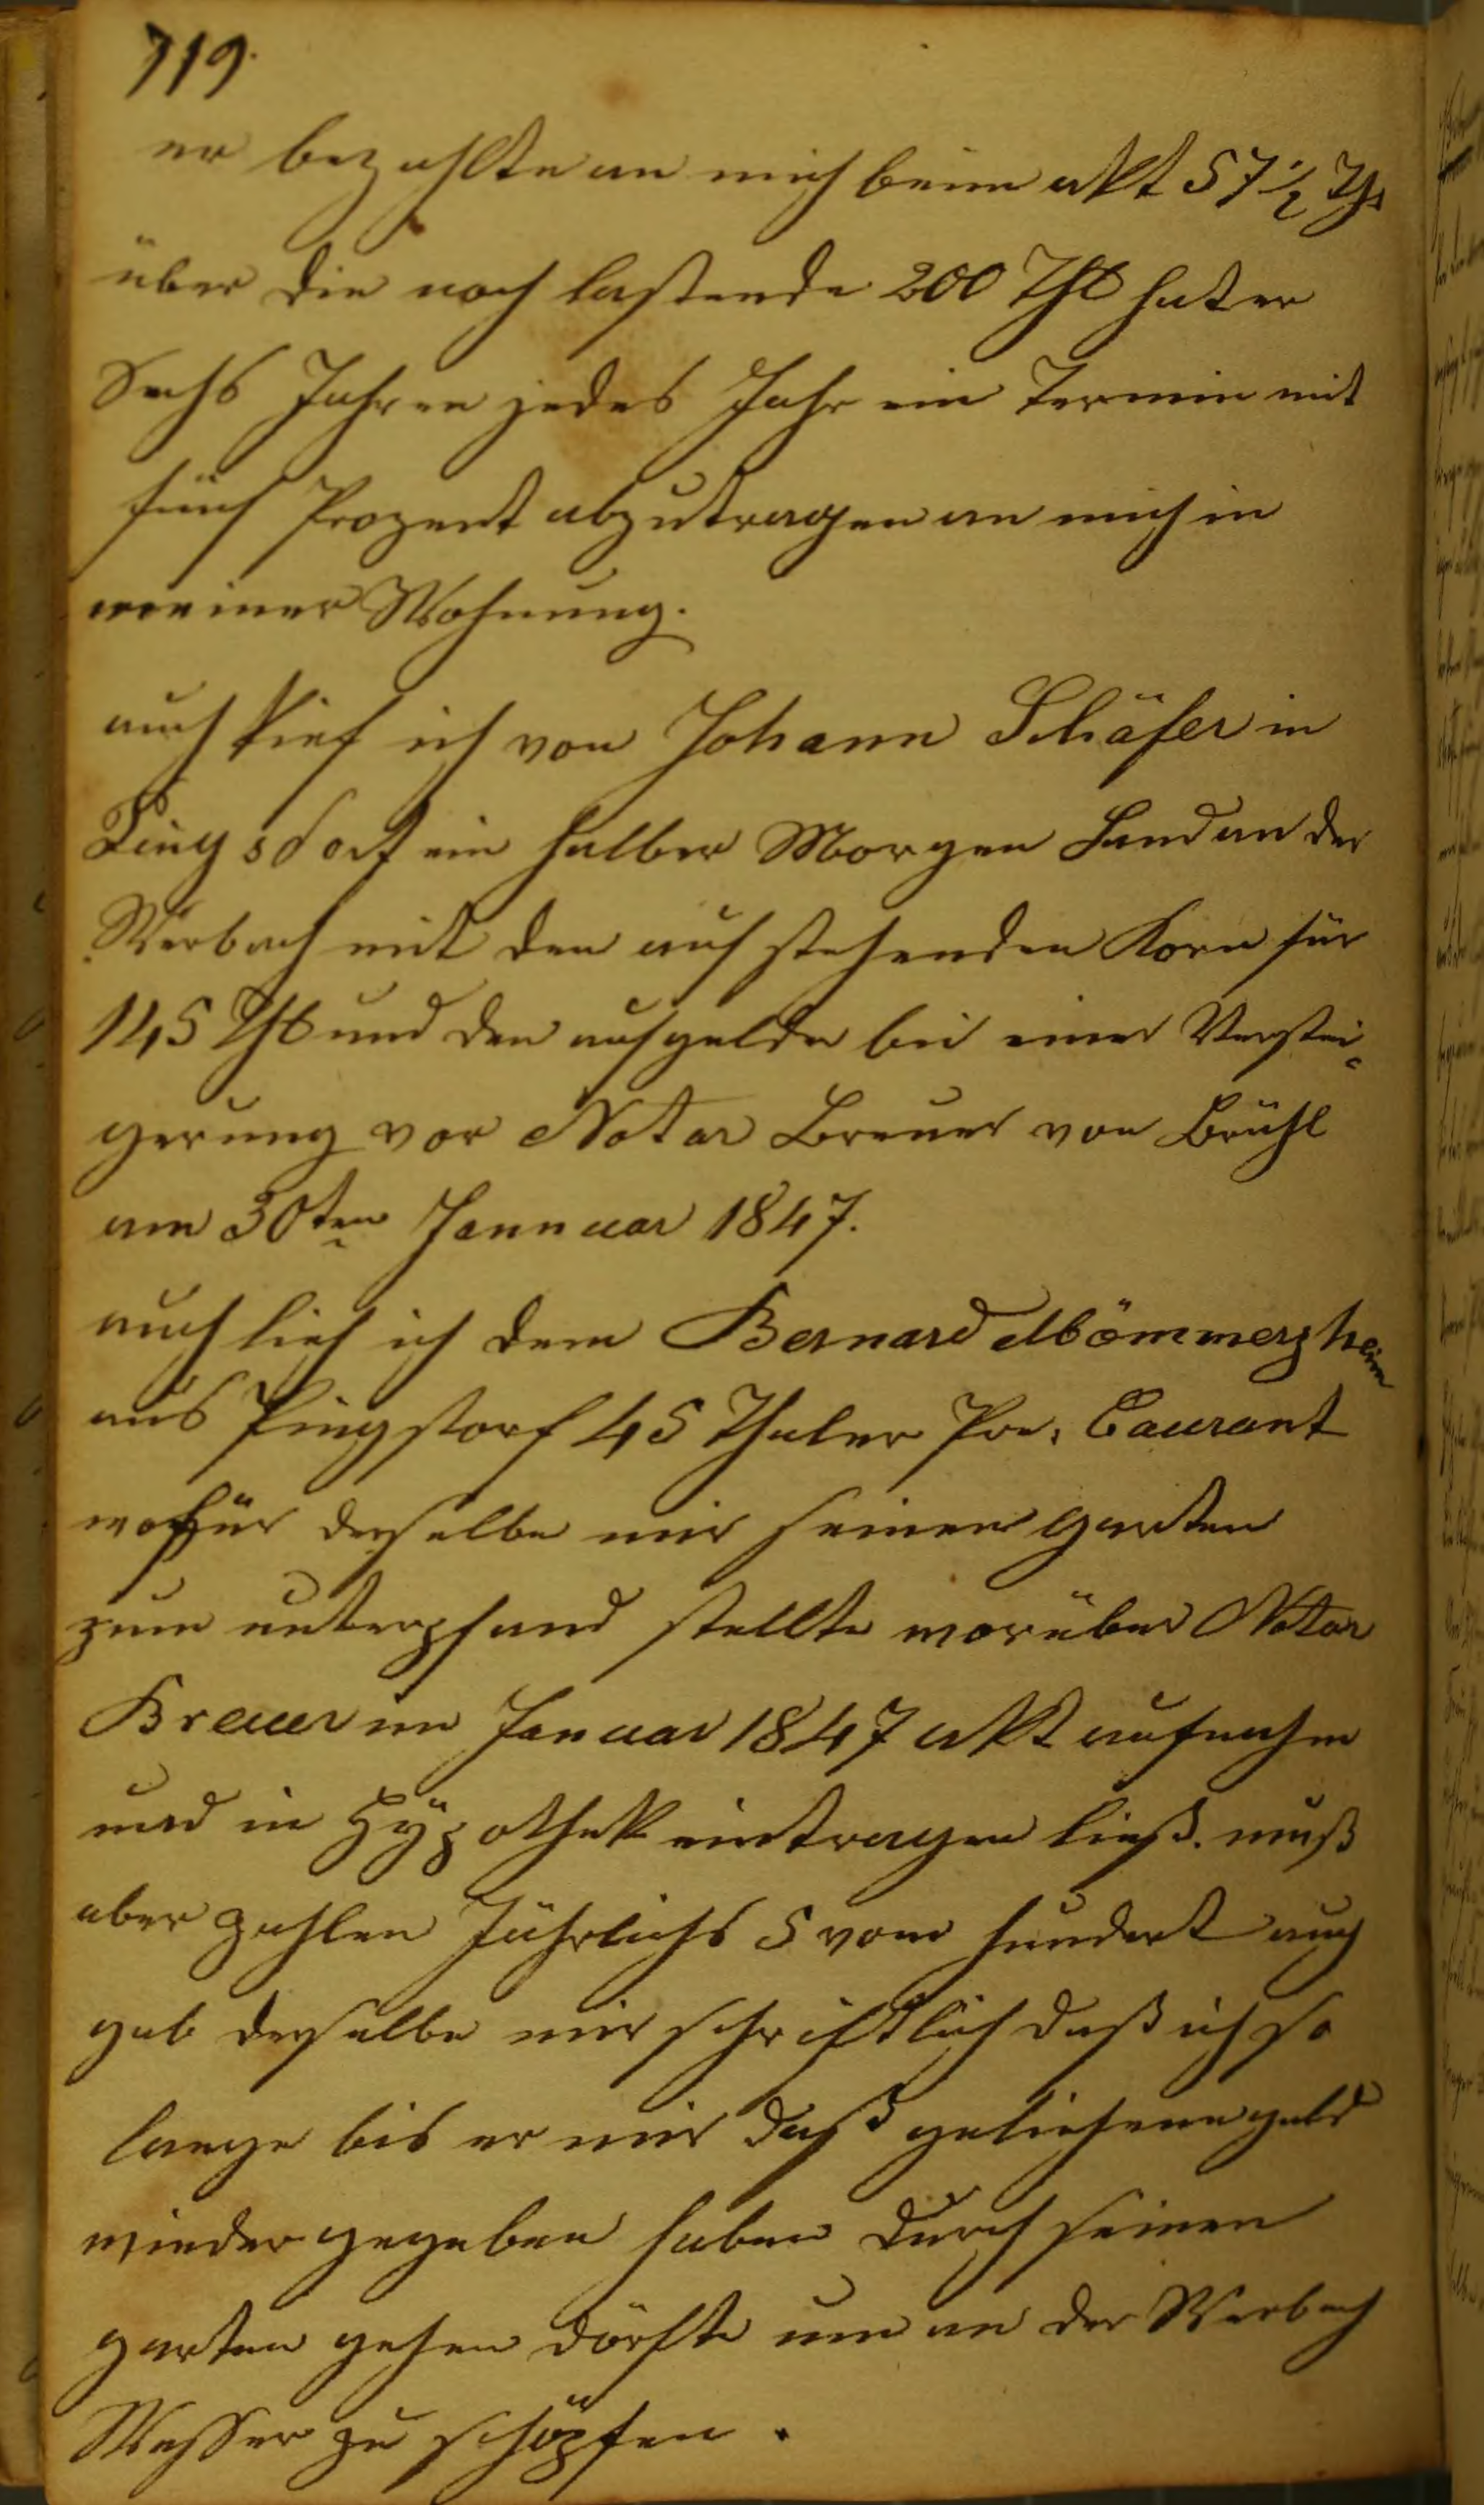 719.
er bezahlte an mich beim akt 57 1/2 Thr
über die noch lastende 200 Thl hat er
Sechs Jahren jedes Jahr ein Termin mit
fünf Prozent abzutragen an mich in
meiner Wohnung.
auch kief ich von Johann Schäfer in
Pingsdorf ein halber Morgen Land an der
Werbach mit den auf stehenden Korn für
145 Thl und den aufgelde bei einer Verstei=
gerung vor Notar Breuer von Brühl
am 30ten Jannuar 1847.
auch lieh ich dem Bernard Mömmerzheim
aus Pingstorf 45 Thaler Pr: Caurant
wofür derselbe mir seinen garten
zum unterpfand stellte worüber Notar
Breuer im Januar 1847 akt aufnahm
und in Hÿpothek eintragen ließ. muß
aber zahlen Jährlichs 5 vom hundert auch
gab derselbe mir schriftlich daß ich so
lange bis er mir daß geliehene geld
wieder gegeben haben durch seinen
garten gehen dörfte um an der Werbach
Wasser zu schöpfen.